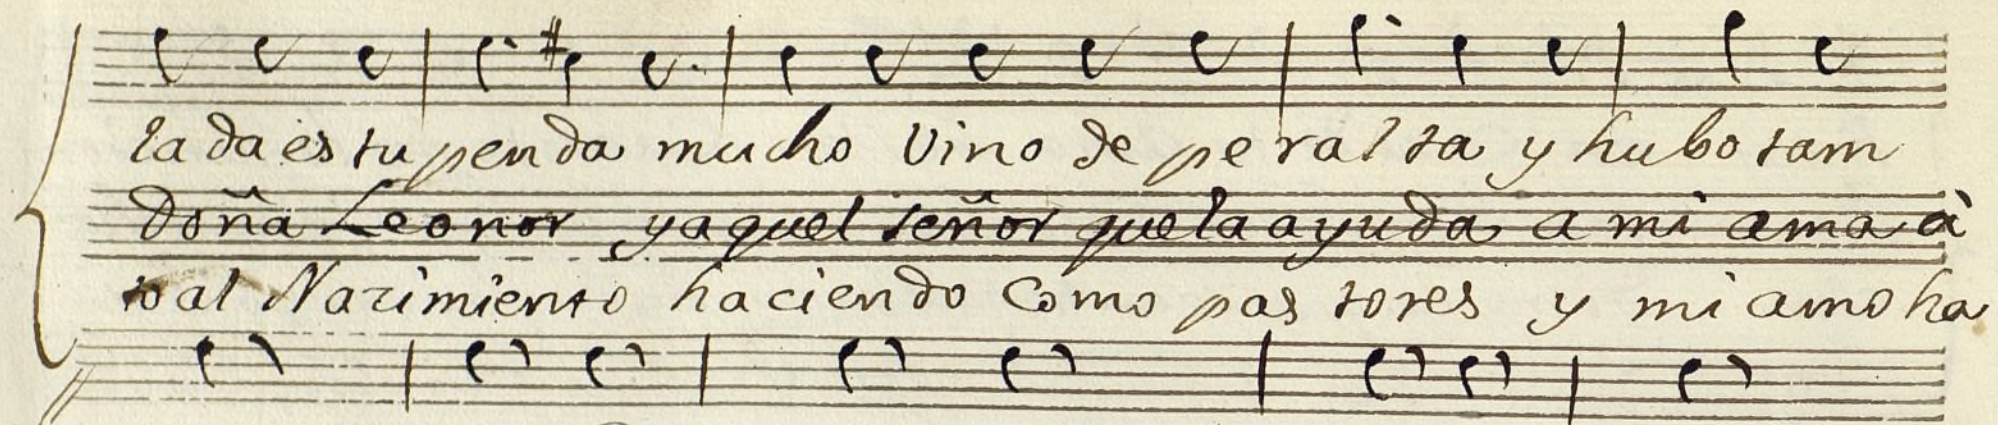 lada es tu pen da mucho Vino de pe ral ta y hubo tam
Doña Leonor y aquel señor que la ayuda a mi ama à
to al Nazimiento haciendo Como pas tores y mi amo ha